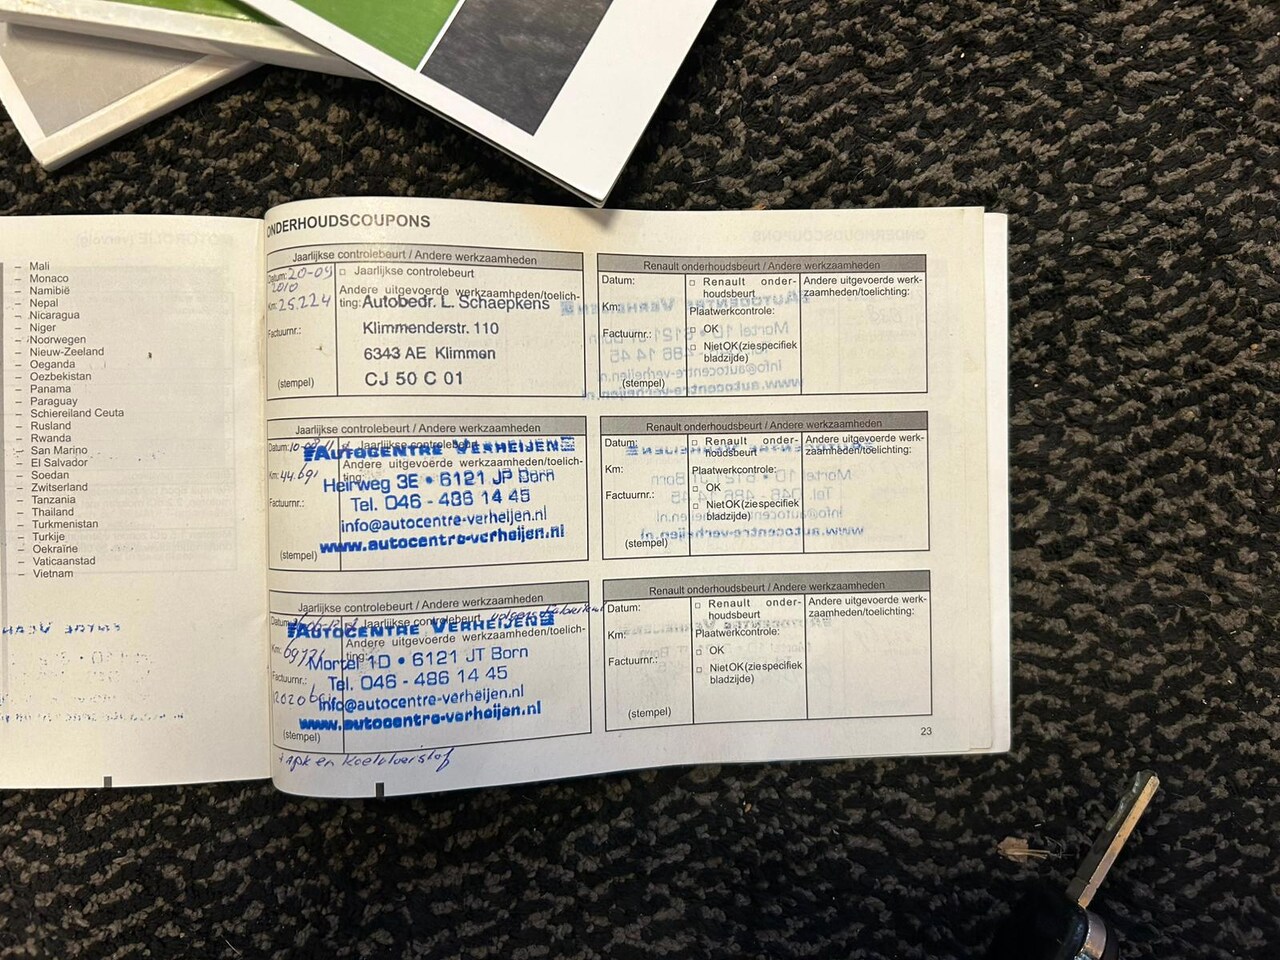 – Mali
– Monaco
– Namibië
– Nepal
– Nicaragua
– Niger
– Noorwegen
– Nieuw-Zeeland
– Oeganda
– Oezbekistan
– Panama
– Paraguay
– Schiereiland Ceuta
– Rusland
– Rwanda
– San Marino
– El Salvador
– Soedan
– Zwitserland
– Tanzania
– Thailand
– Turkmenistan
– Turkije
– Oekraïne
– Vaticaanstad
– Vietnam
ONDERHOUDSCOUPONS
Jaarlijkse controlebeurt / Andere werkzaamheden
Datum: 20-09
2010
Km: 25.224
Factuurnr.:
(stempel)
Jaarlijkse controlebeurt
Andere uitgevoerde werkzaamheden/toelich-
ting: Autobedr. L. Schaepkens
Klimmenderstr. 110
6343 AE Klimmen
CJ 50 C 01
Renault onderhoudsbeurt / Andere werkzaamheden
Datum:
Km:
Factuurnr.:
(stempel)
Renault onder-
houdsbeurt
Plaatwerkcontrole:
OK
Niet OK (zie specifiek
bladzijde)
Andere uitgevoerde werk-
zaamheden/toelichting:
Jaarlijkse controlebeurt / Andere werkzaamheden
Datum:
Km: 44.691
Factuurnr.:
(stempel)
Jaarlijkse controlebeurt
Andere uitgevoerde werkzaamheden/toelich-
ting:
AUTOCENTRE VERHEIJEN
Heirweg 3E • 6121 JP Born
Tel. 046 - 486 14 45
info@autocentre-verheijen.nl
www.autocentre-verheijen.nl
Renault onderhoudsbeurt / Andere werkzaamheden
Datum:
Km:
Factuurnr.:
(stempel)
Renault onder-
houdsbeurt
Plaatwerkcontrole:
OK
Niet OK (zie specifiek
bladzijde)
Andere uitgevoerde werk-
zaamheden/toelichting:
Jaarlijkse controlebeurt / Andere werkzaamheden
Datum:
Km:
Factuurnr.:
(stempel)
Jaarlijkse controlebeurt volgens
Andere uitgevoerde werkzaamheden/toelich-
ting:
AUTOCENTRE VERHEIJEN
Mortel 1D • 6121 JT Born
Tel. 046 - 486 14 45
info@autocentre-verheijen.nl
www.autocentre-verheijen.nl
+ Apk en koelvloeistof
Renault onderhoudsbeurt / Andere werkzaamheden
Datum:
Km:
Factuurnr.:
(stempel)
Renault onder-
houdsbeurt
Plaatwerkcontrole:
OK
Niet OK (zie specifiek
bladzijde)
Andere uitgevoerde werk-
zaamheden/toelichting:
23